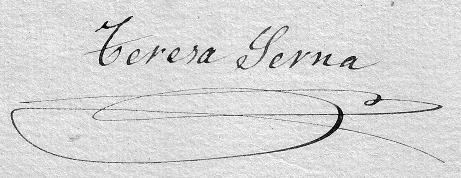 Teresa Serna